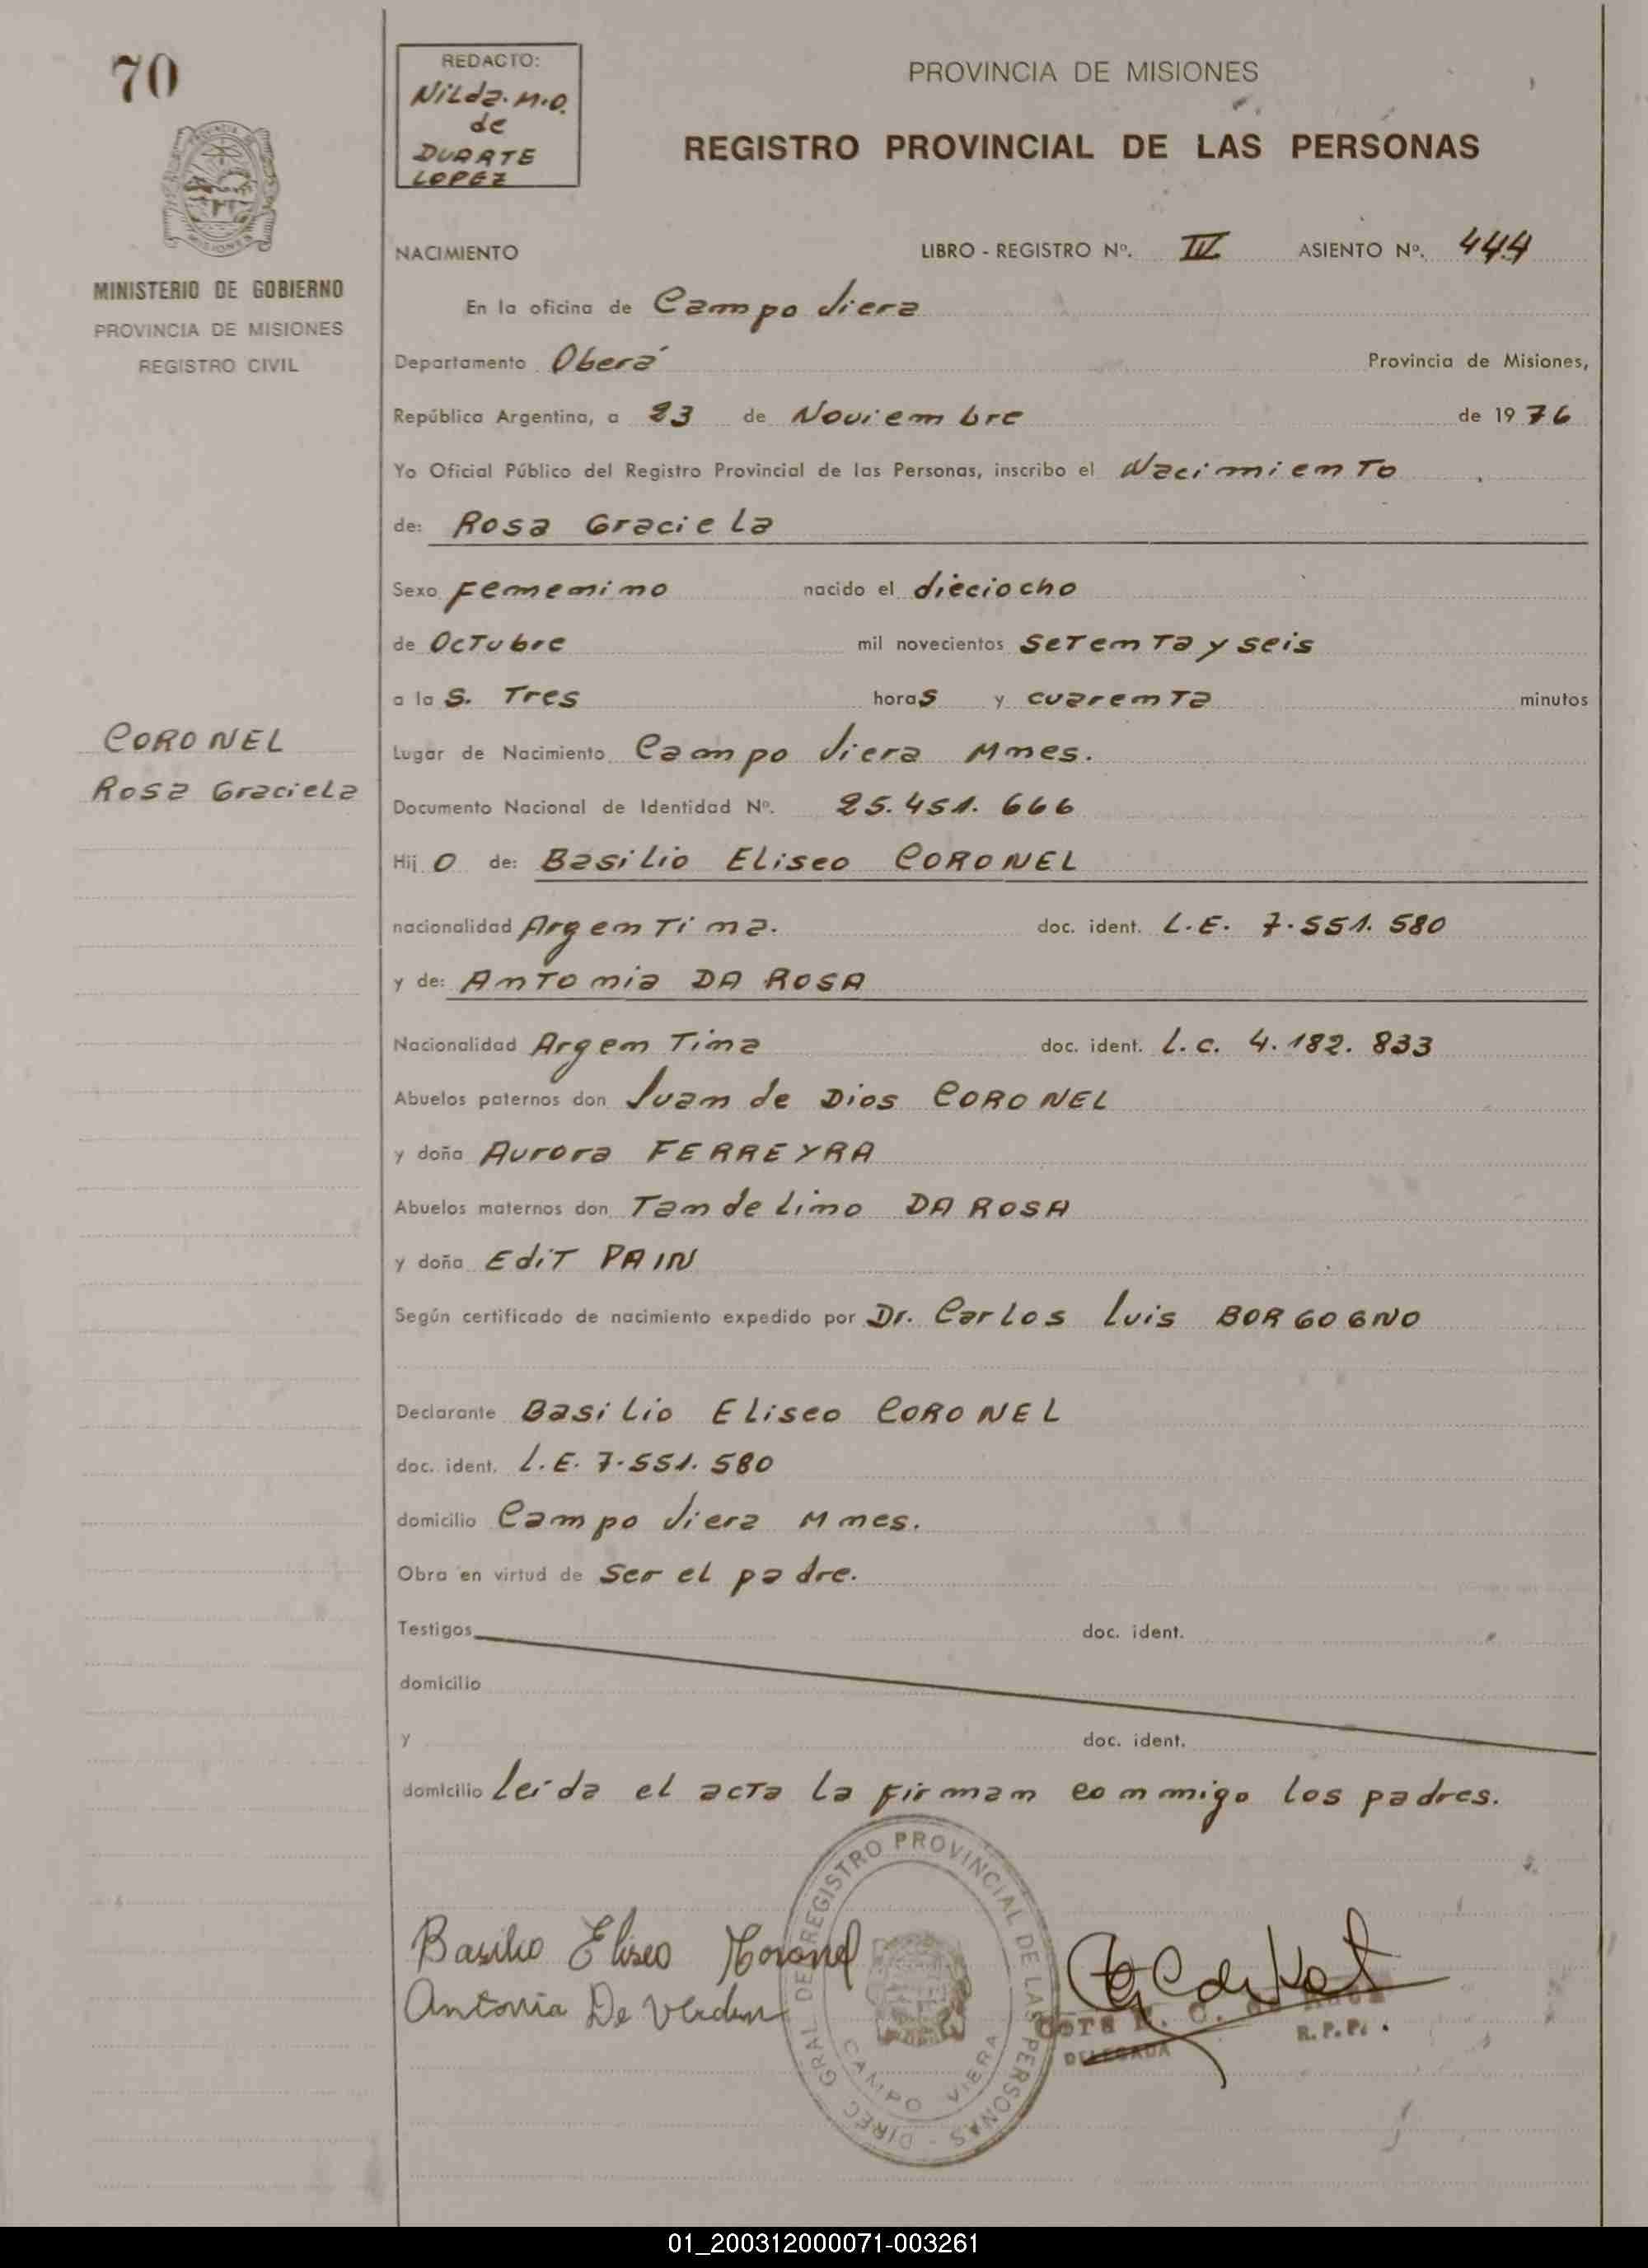 70
MINISTERIO DE GOBIERNO
PROVINCIA DE MISIONES
REGISTRO CIVIL
CORONEL
Rosa Graciela
REDACTO:
Nilda. M.O.
de
DUARTE
LOPEZ
PROVINCIA DE MISIONES
REGISTRO PROVINCIAL DE LAS PERSONAS
NACIMIENTO LIBRO - REGISTRO Nº. IV ASIENTO Nº. 444
En la oficina de Campo Viera
Departamento Oberá Provincia de Misiones,
República Argentina, a 23 de Noviembre de 1976
Yo Oficial Público del Registro Provincial de las Personas, inscribo el Nacimiento
de: Rosa Graciela
Sexo Femenino nacido el dieciocho
de Octubre mil novecientos Setenta y seis
a las. Tres horas y cuarenta minutos
Lugar de Nacimiento Campo Viera Mnes.
Documento Nacional de Identidad Nº. 25.451.666
Hijo de: Basilio Eliseo CORONEL
nacionalidad Argentina. doc. ident. L.E. 7.551.580
y de: Antonia DA ROSA
Nacionalidad Argentina doc. ident. L.C. 4.182.833
Abuelos paternos don Juan de Dios CORONEL
y doña Aurora FERREYRA
Abuelos maternos don Tandelino DA ROSA
y doña Edit PAIN
Según certificado de nacimiento expedido por Dr. Carlos Luis BORGOGNO
Declarante Basilio Eliseo CORONEL
doc. ident. L.E. 7.551.580
domicilio Campo Viera Mnes.
Obra en virtud de Ser el padre.
Testigos doc. ident.
domicilio
y doc. ident.
domicilio leída el acta la firman conmigo los padres.
Basilio Eliseo Coronel
Antonia De
DIREC. GRAL DEL REGISTRO PROVINCIAL DE LAS PERSONAS -
CAMPO VIERA
R.P.P.
DELEGADA
01_200312000071-003261